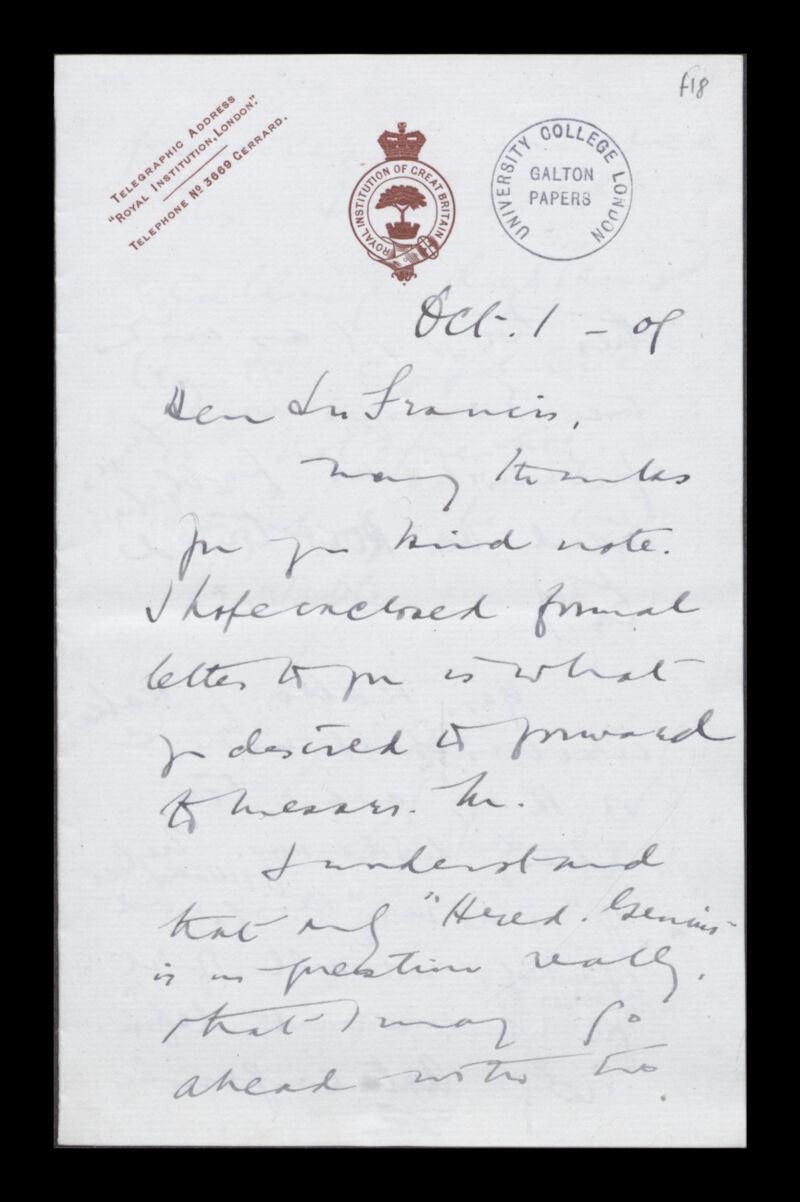 f18
TELEGRAPHIC ADDRESS
"ROYAL INSTITUTION, LONDON."
TELEPHONE No 3669 GERRARD.
ROYAL INSTITUTION OF GREAT BRITAIN
UNIVERSITY COLLEGE LONDON
GALTON
PAPERS
Oct. 1 - 09
Dear Sir Francis,
Many thanks
for your kind note.
I hope enclosed formal
letter to you is what
you desired to forward
to Messrs. M.
I understand
that only "Hered. Genius"
is in question really,
that I may go
ahead with the